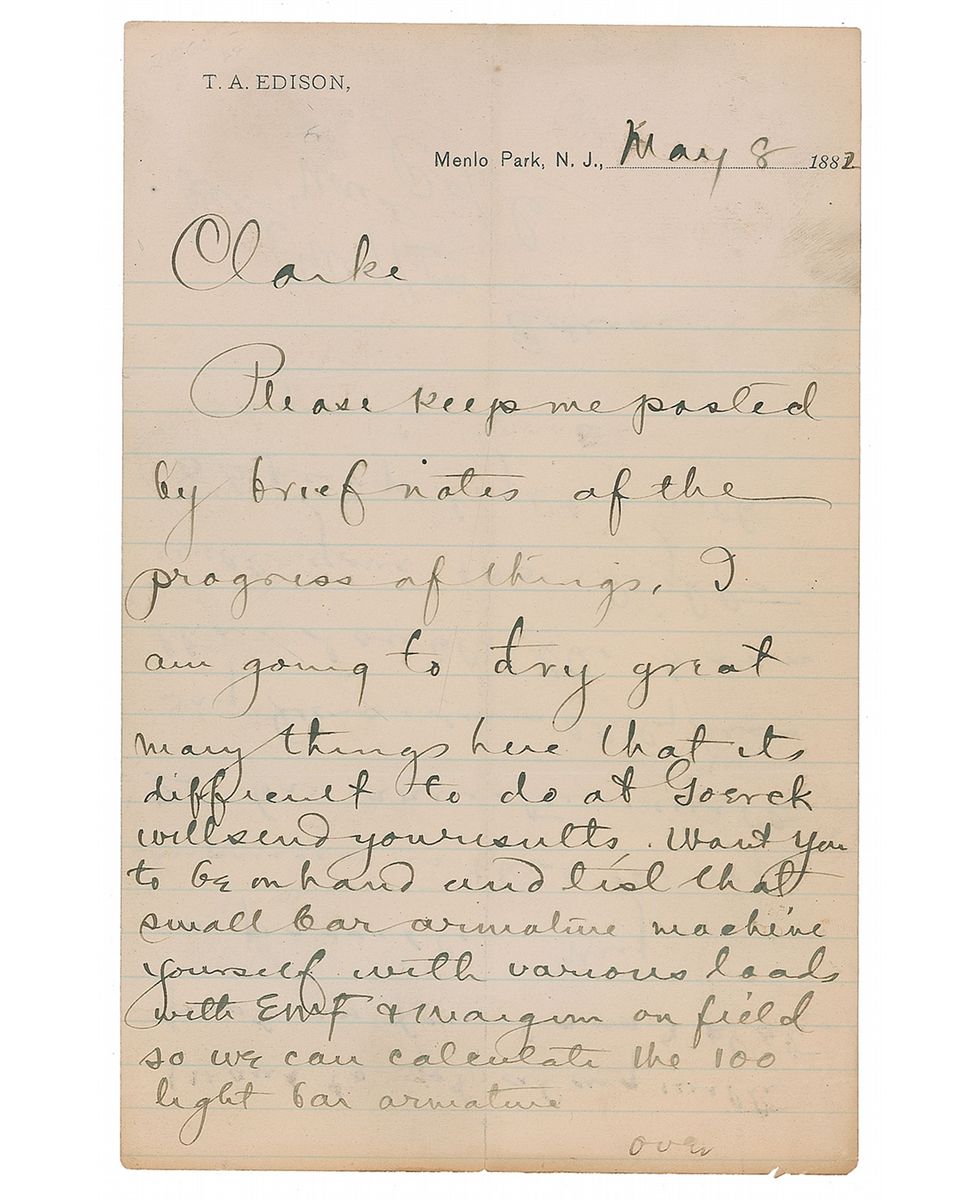 T. A. EDISON,
Menlo Park, N. J., May 8 1882
Clarke
Please keep me posted
by brief notes of the
progress of things, I
am going to try great
many things here that its
difficult to do at Goerck
will send you results. Want you
to be on hand and test that
small bar armature machine
yourself with various loads
with EMF & margin on field
so we can calculate the 100
light bar armature
over